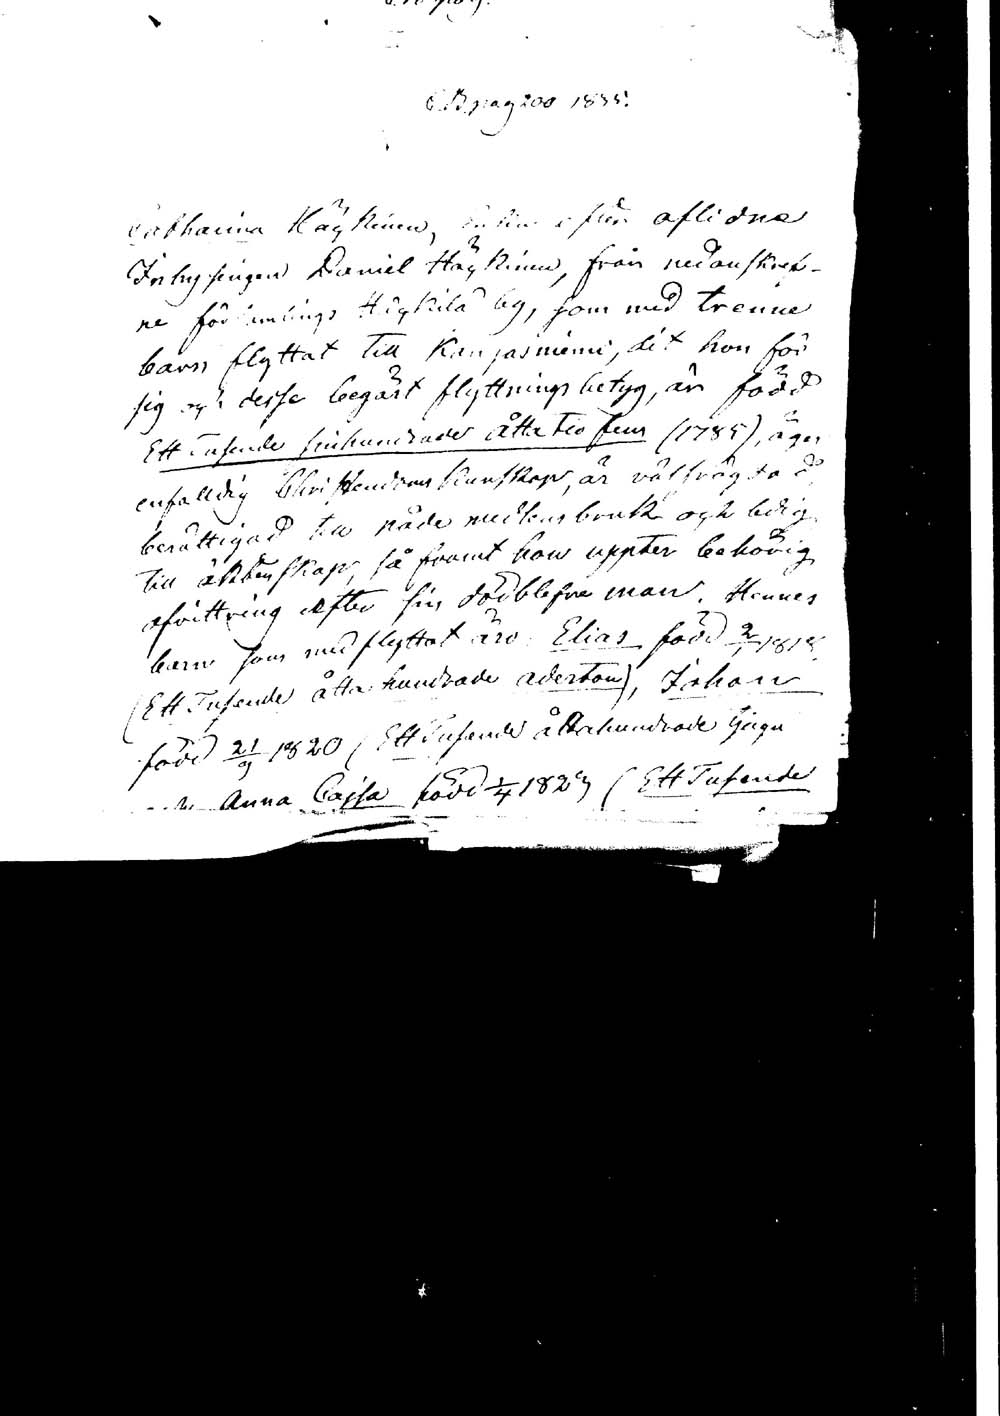 C.B. pag 200 1835.
Catharina Häykinen, enkia efter aflidne
Inhysingen Daniel Häykinen, från nedanskref-
ne församlings Häkilä by, som med trenne
barn flyttat till Kangasniemi, dit hon för
sig och desse begärt flyttningsbetyg, är född
Ett Tusende sjuhundrade åttatio fem (1785), äger
enfalldig Christendoms kunskap, är välfrägdad,
berättigad till nådemedlens bruk och ledig
till äktenskap, så framt hon uppter behörig
afvittring efter sin dödblefne man. Hennes
barn som medflyttat äro: Elias född 2/1 1818
(Ett Tusende åtta hundrade aderton), Johan
född 21/9 1820 (Ett Tusende åttahundrade tjugu
och Anna Cajsa född 1/4 1827 (Ett Tusende